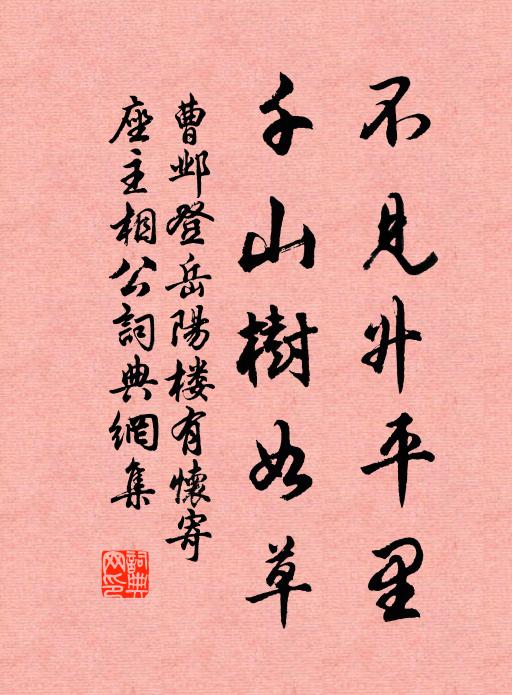 不見升平里
千山樹如草
曹邺登岳陽楼有懷寄
座主相公詞典網集
詞典
网印